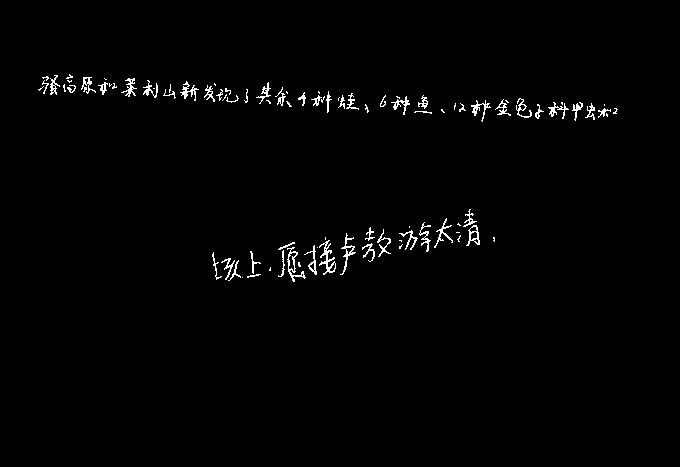 强高原和莱利山新发现了其余4种蛙、6种鱼、12种金龟子科甲虫和
垓上，愿接卢敖游太清，